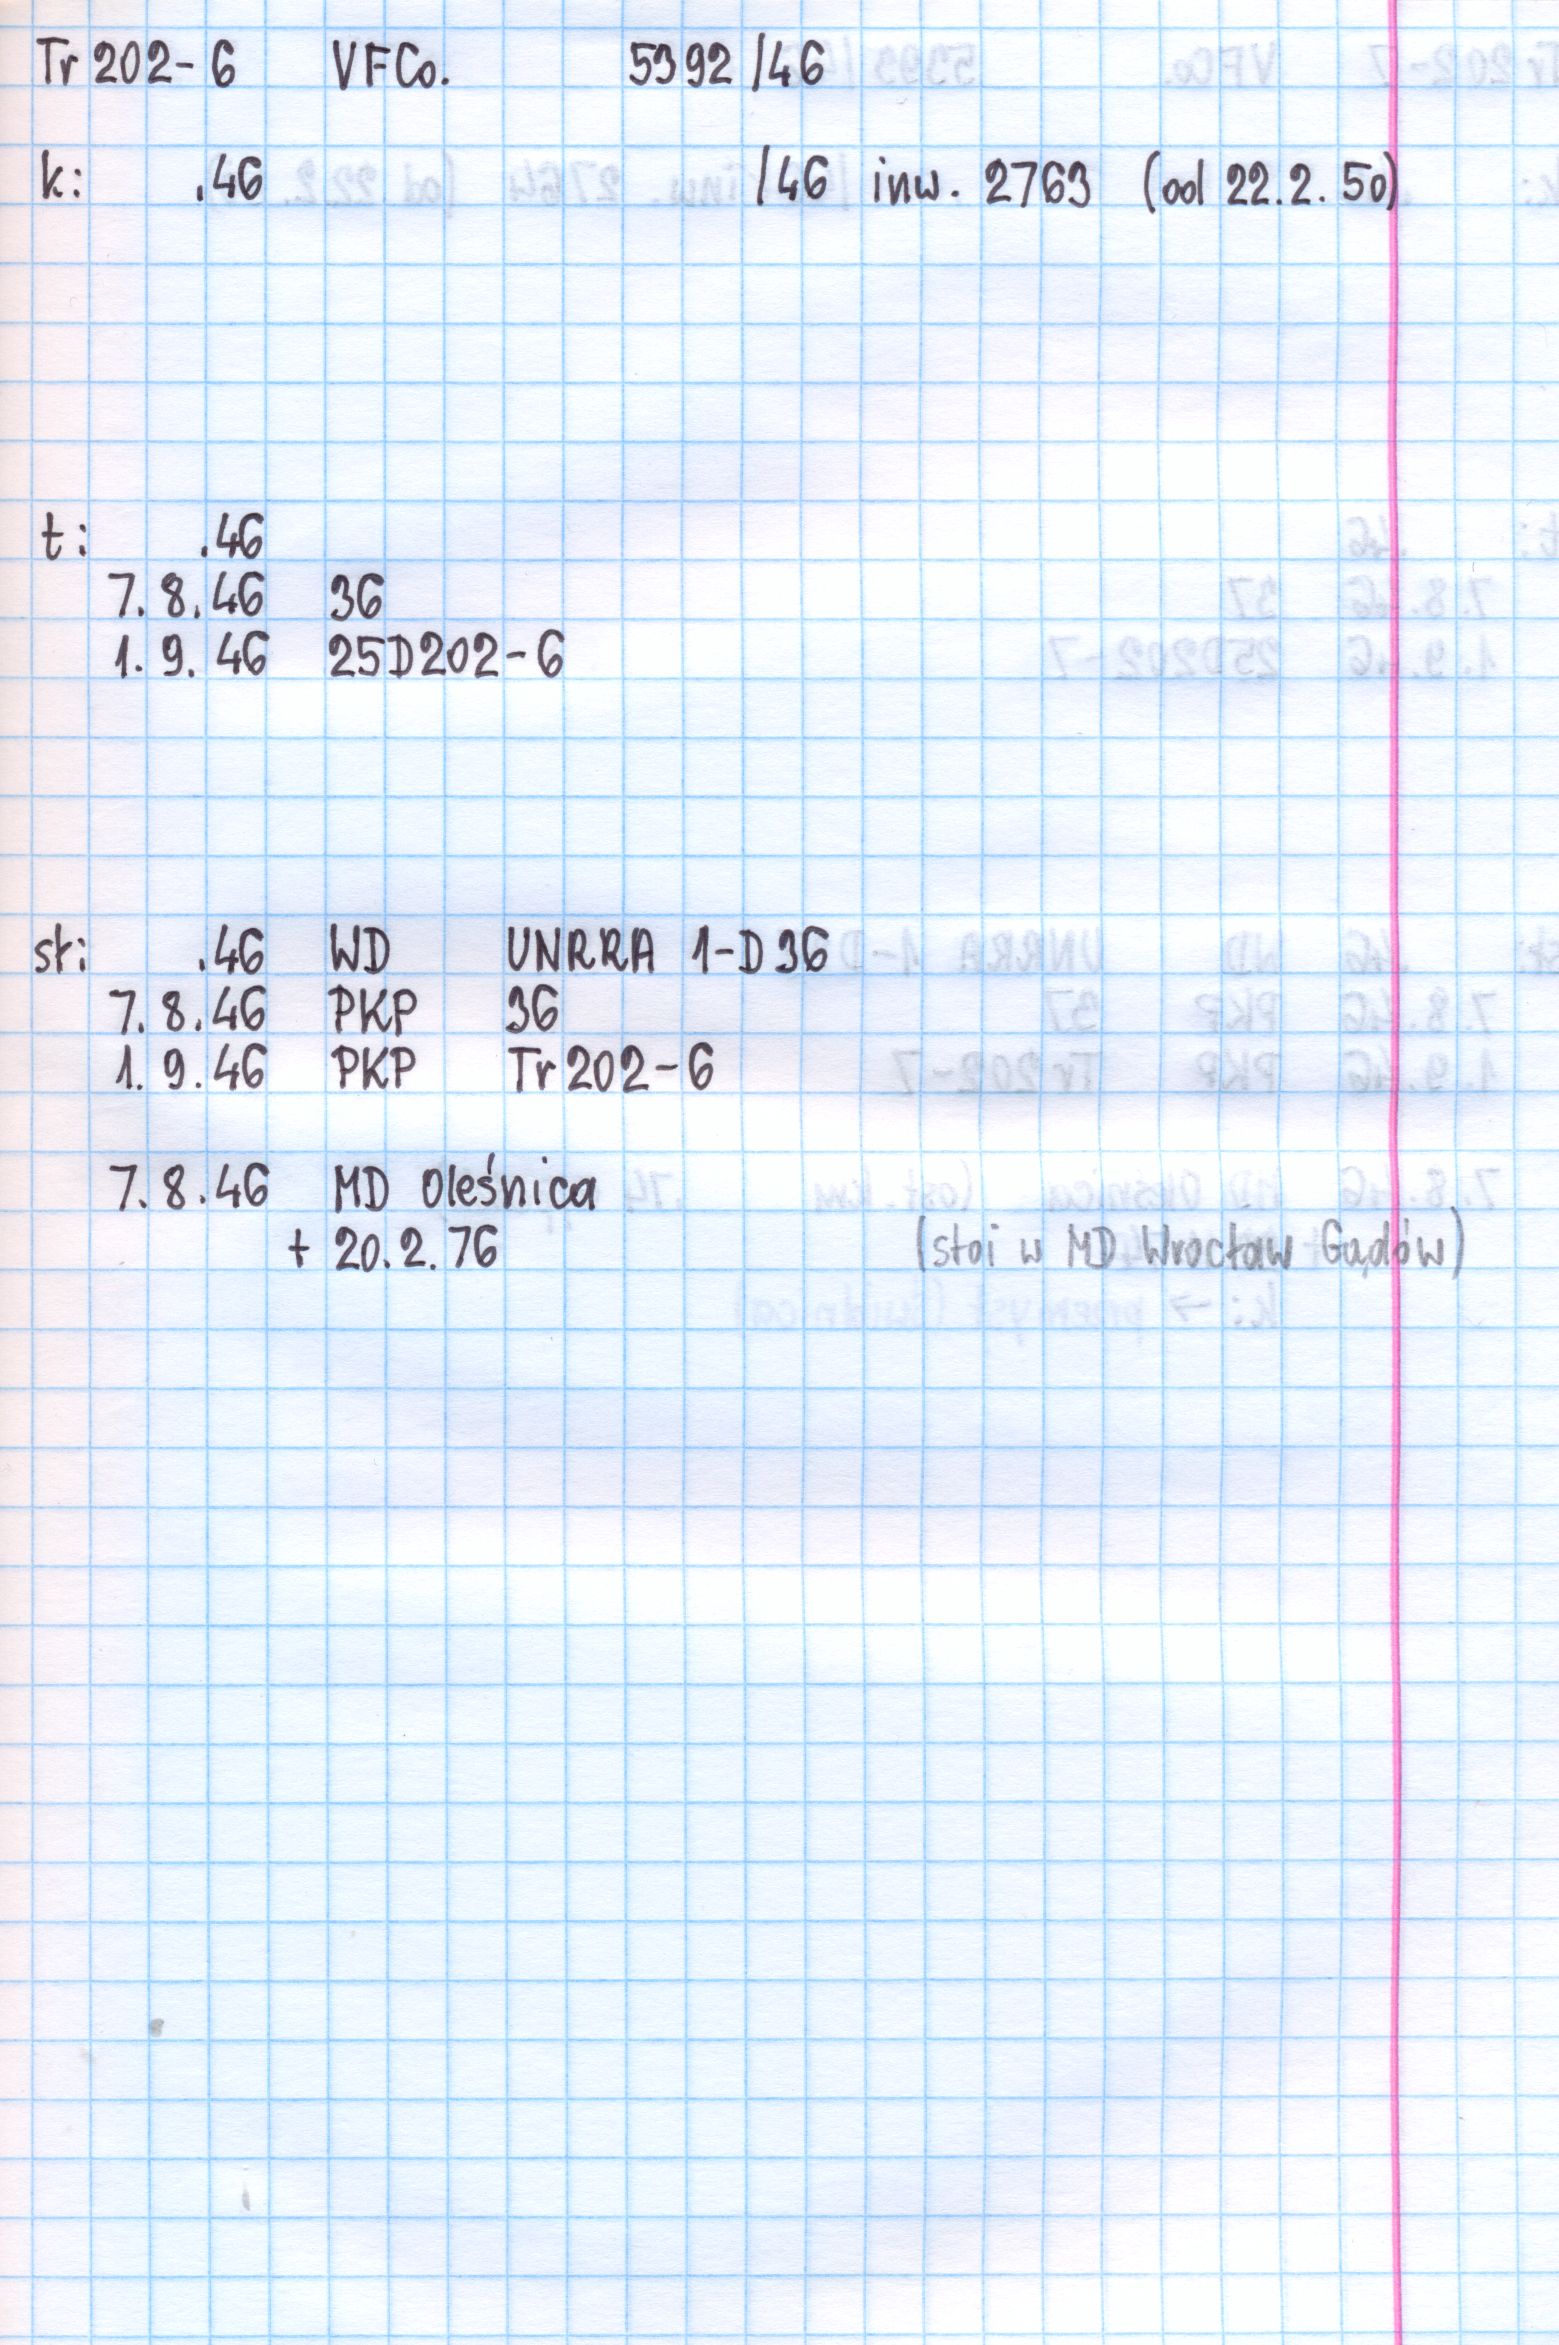 Tr 202-6 VFCo. 5392 /46
k: .46 /46 inw. 2763 (od 22.2.50)
t: .46
7.8.46 36
1.9.46 25D202-6
st: .46 WD UNRRA 1-D36
7.8.46 PKP 36
1.9.46 PKP Tr 202-6
7.8.46 MD Oleśnica
+ 20.2.76 (stoi w MD Wrocław Gądów)